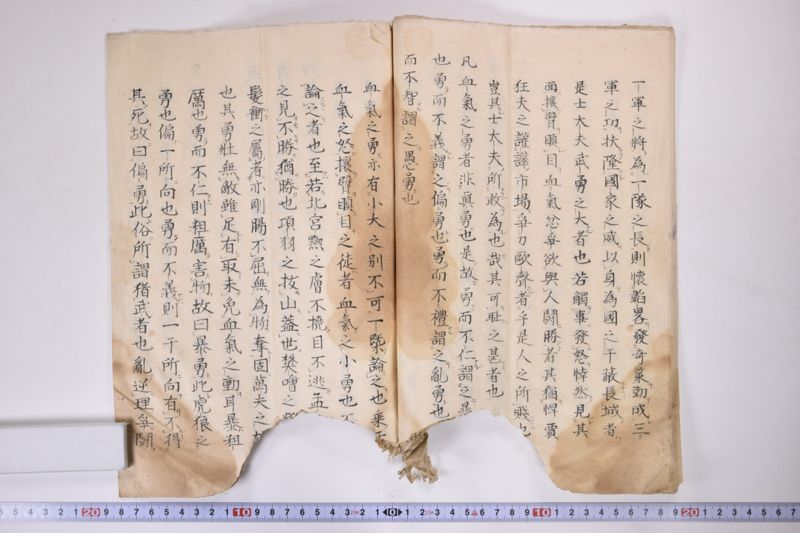 一軍之將為一隊之長則懷韜畧發奇策勤成三
軍之功扶隆國家之威以身為國之干敵長城者
是士大夫武勇之大者也若觸事發怒悻然見其
面攘臂瞋目血氣忿爭欲與人鬪勝者其猶悍賣
狂夫之讙譁市場爭刀歐聲者乎是人之所賤也
豈其士大夫所敢為也哉其可耻之甚者也
凡血氣之勇者非眞勇也是故勇而不仁謂之暴
也勇而不義謂之偏勇也勇而不禮謂之亂勇也
而不智謂之愚勇也
血氣之勇亦有小大之別不可一槩論之也乗
血氣之怒攘臂瞋目之徒者血氣之小勇也
論之者也至若北宮黝之膚不撓目不逃孟
之見不勝猶勝也項羽之拔山蓋世樊噲之
髮衝之屬者亦剛腸不屈無為物奪固萬夫之
也其勇壯無敵雖足有取未免血氣之動耳暴粗
厲也勇而不仁則粗厲害物故曰暴勇此虎狼之
勇也偏一所向也勇而不義則一于所向有不得
其死故曰偏勇此俗所謂猪武者也亂逆理爭鬪
20 10 0 10 20